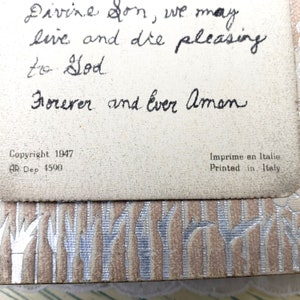 Divine Son, we may
live and die pleasing
to God
Forever and Ever Amen
Copyright 1947
AR Dep 4590
Imprime en Italie
Printed in Italy